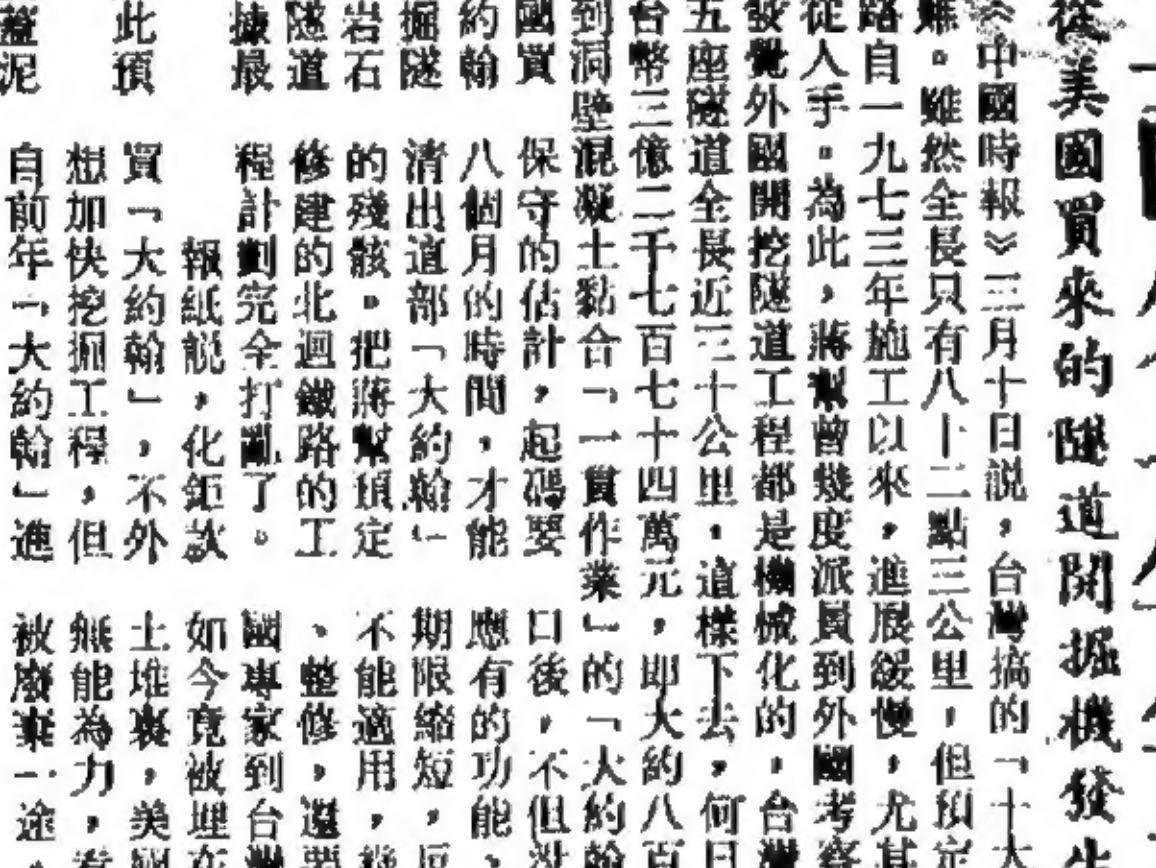 從美國買來的隧道開掘機發生
《中國時報》三月十日説,台灣搞的「十大
難。雖然全長只有八十二點三公里,但預定
路自一九七三年施工以來,進展緩慢,尤其
從人手。為此,蔣幫曾幾度派員到外國考察
發覺外國開挖隧道工程都是機械化的,台灣
五座隧道全長近三十公里,這樣下去,何日
台幣三億二千七百七十四萬元,即大約八百
到洞壁混凝土黏合「一貫作業」的「大約翰
國買
約翰
掘隧
岩石
隧道
捷最
此預
泥
保守的估計,起碼要
八個月的時間,才能
清出這部「大約翰」
的殘骸。把蔣幫預定
修建的北迴鐵路的工
程計劃完全打亂了。
報紙説,化鉅款
買「大約翰」,不外
想加快挖掘工程,但
自前年「大約翰」進
口後,不但沒
應有的功能、
期限縮短,反
不能適用,幾
、整修,還要
國專家到台灣
如今竟被埋在
土堆裏,美國
無能為力,看
被廢棄一途。